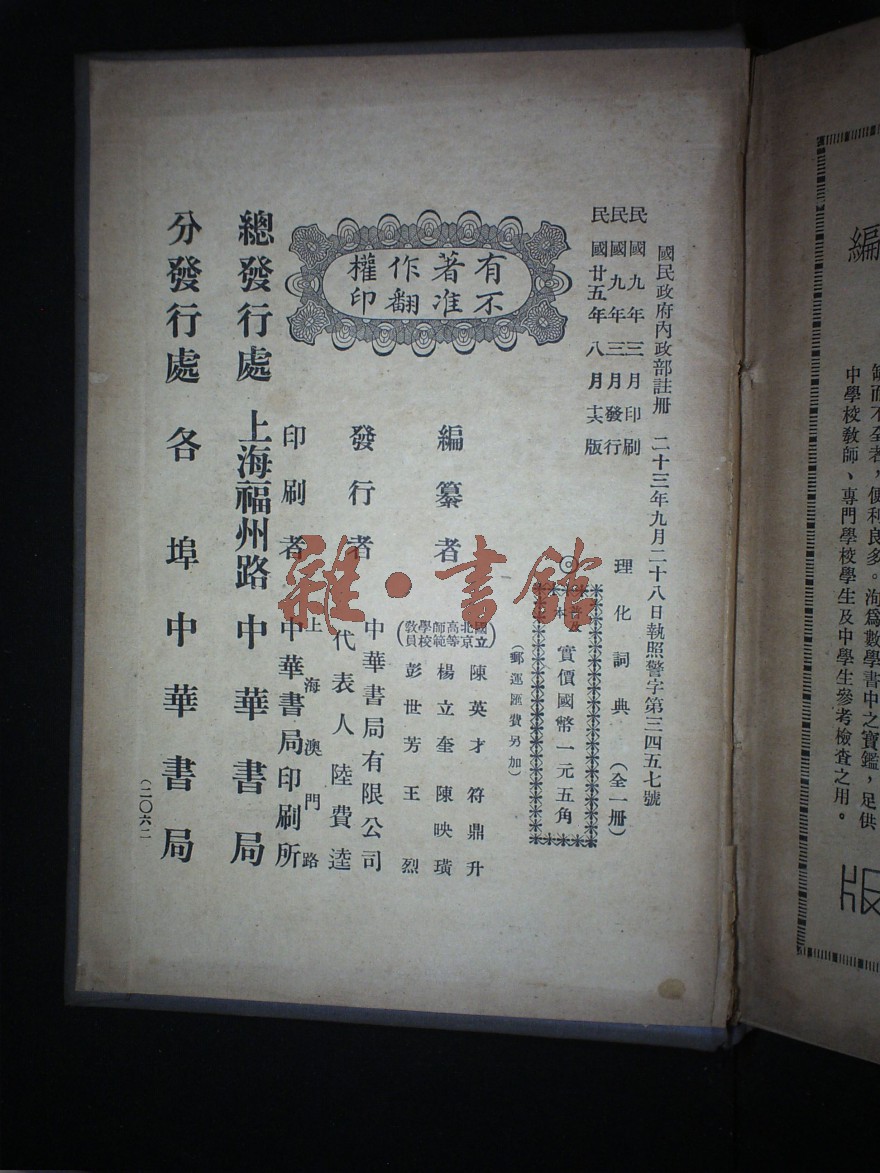 編
版
缺而不全者，便利良多。洵爲數學書中之寶鑑，足供
中學校教師、專門學校學生及中學生參考檢查之用。
國民政府內政部註冊　二十三年九月二十八日執照警字第三四五七號
民國九年三月印刷
民國九年三月發行
民國廿五年八月十六版
理化詞典（全一冊）
實價國幣一元五角
（郵運匯費另加）
有著作權
不准翻印
編纂者
國立北京高等師範學校教員
陳英才　符鼎升
楊立奎　陳映璜
彭世芳　王烈
發行者
中華書局有限公司
代表人陸費逵
印刷者
上海澳門路
中華書局印刷所
總發行處　上海福州路　中華書局
分發行處　各埠中華書局
（二〇六二）
雜·書館